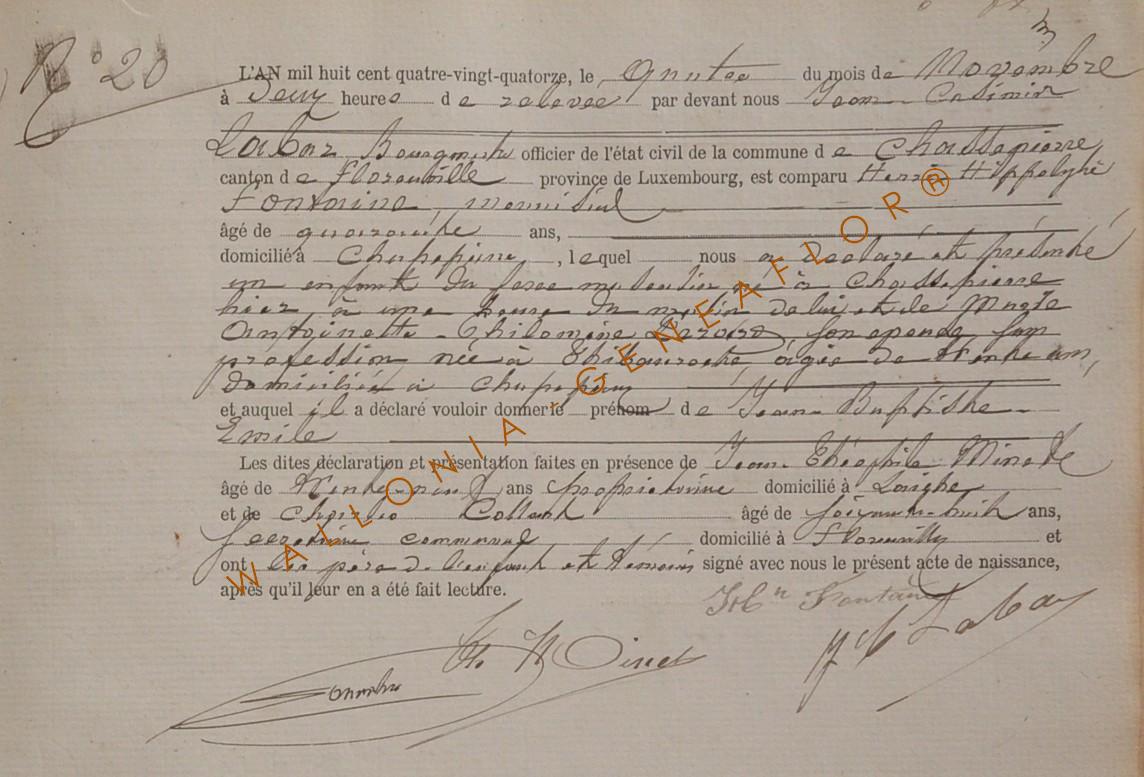 N° 20
L'AN mil huit cent quatre-vingt-quatorze, le quatre du mois de Novembre
à deux heures de relevée par devant nous Jean-Casimir
Labar Bourgmestre officier de l'état civil de la commune de Chassepierre
canton de Florenville province de Luxembourg, est comparu Henri Hippolyte
Fontaine,
âgé de quarante ans,
domicilié à Chassepierre, lequel nous a déclaré et présenté
un enfant du sexe masculin né à Chassepierre
hier à une heure du matin de lui et de Marie
Antoinette Philomène son épouse san
profession née à âgée de trente ans,
domiciliée à Chassepierre
et auquel il a déclaré vouloir donner le prénom de Jean-Baptiste-
Emile
Les dites déclaration et présentation faites en présence de Jean-Théophile Minet
âgé de trente-neuf ans propriétaire domicilié à Laiche
et de Collard âgé de soixante-huit ans,
secrétaire communal domicilié à Florenville et
ont les père de l'enfant et témoins signé avec nous le présent acte de naissance,
après qu'il leur en a été fait lecture.
Fontaine
J C Labar
Th Minet
WALLONIA - GENEAFLOR®